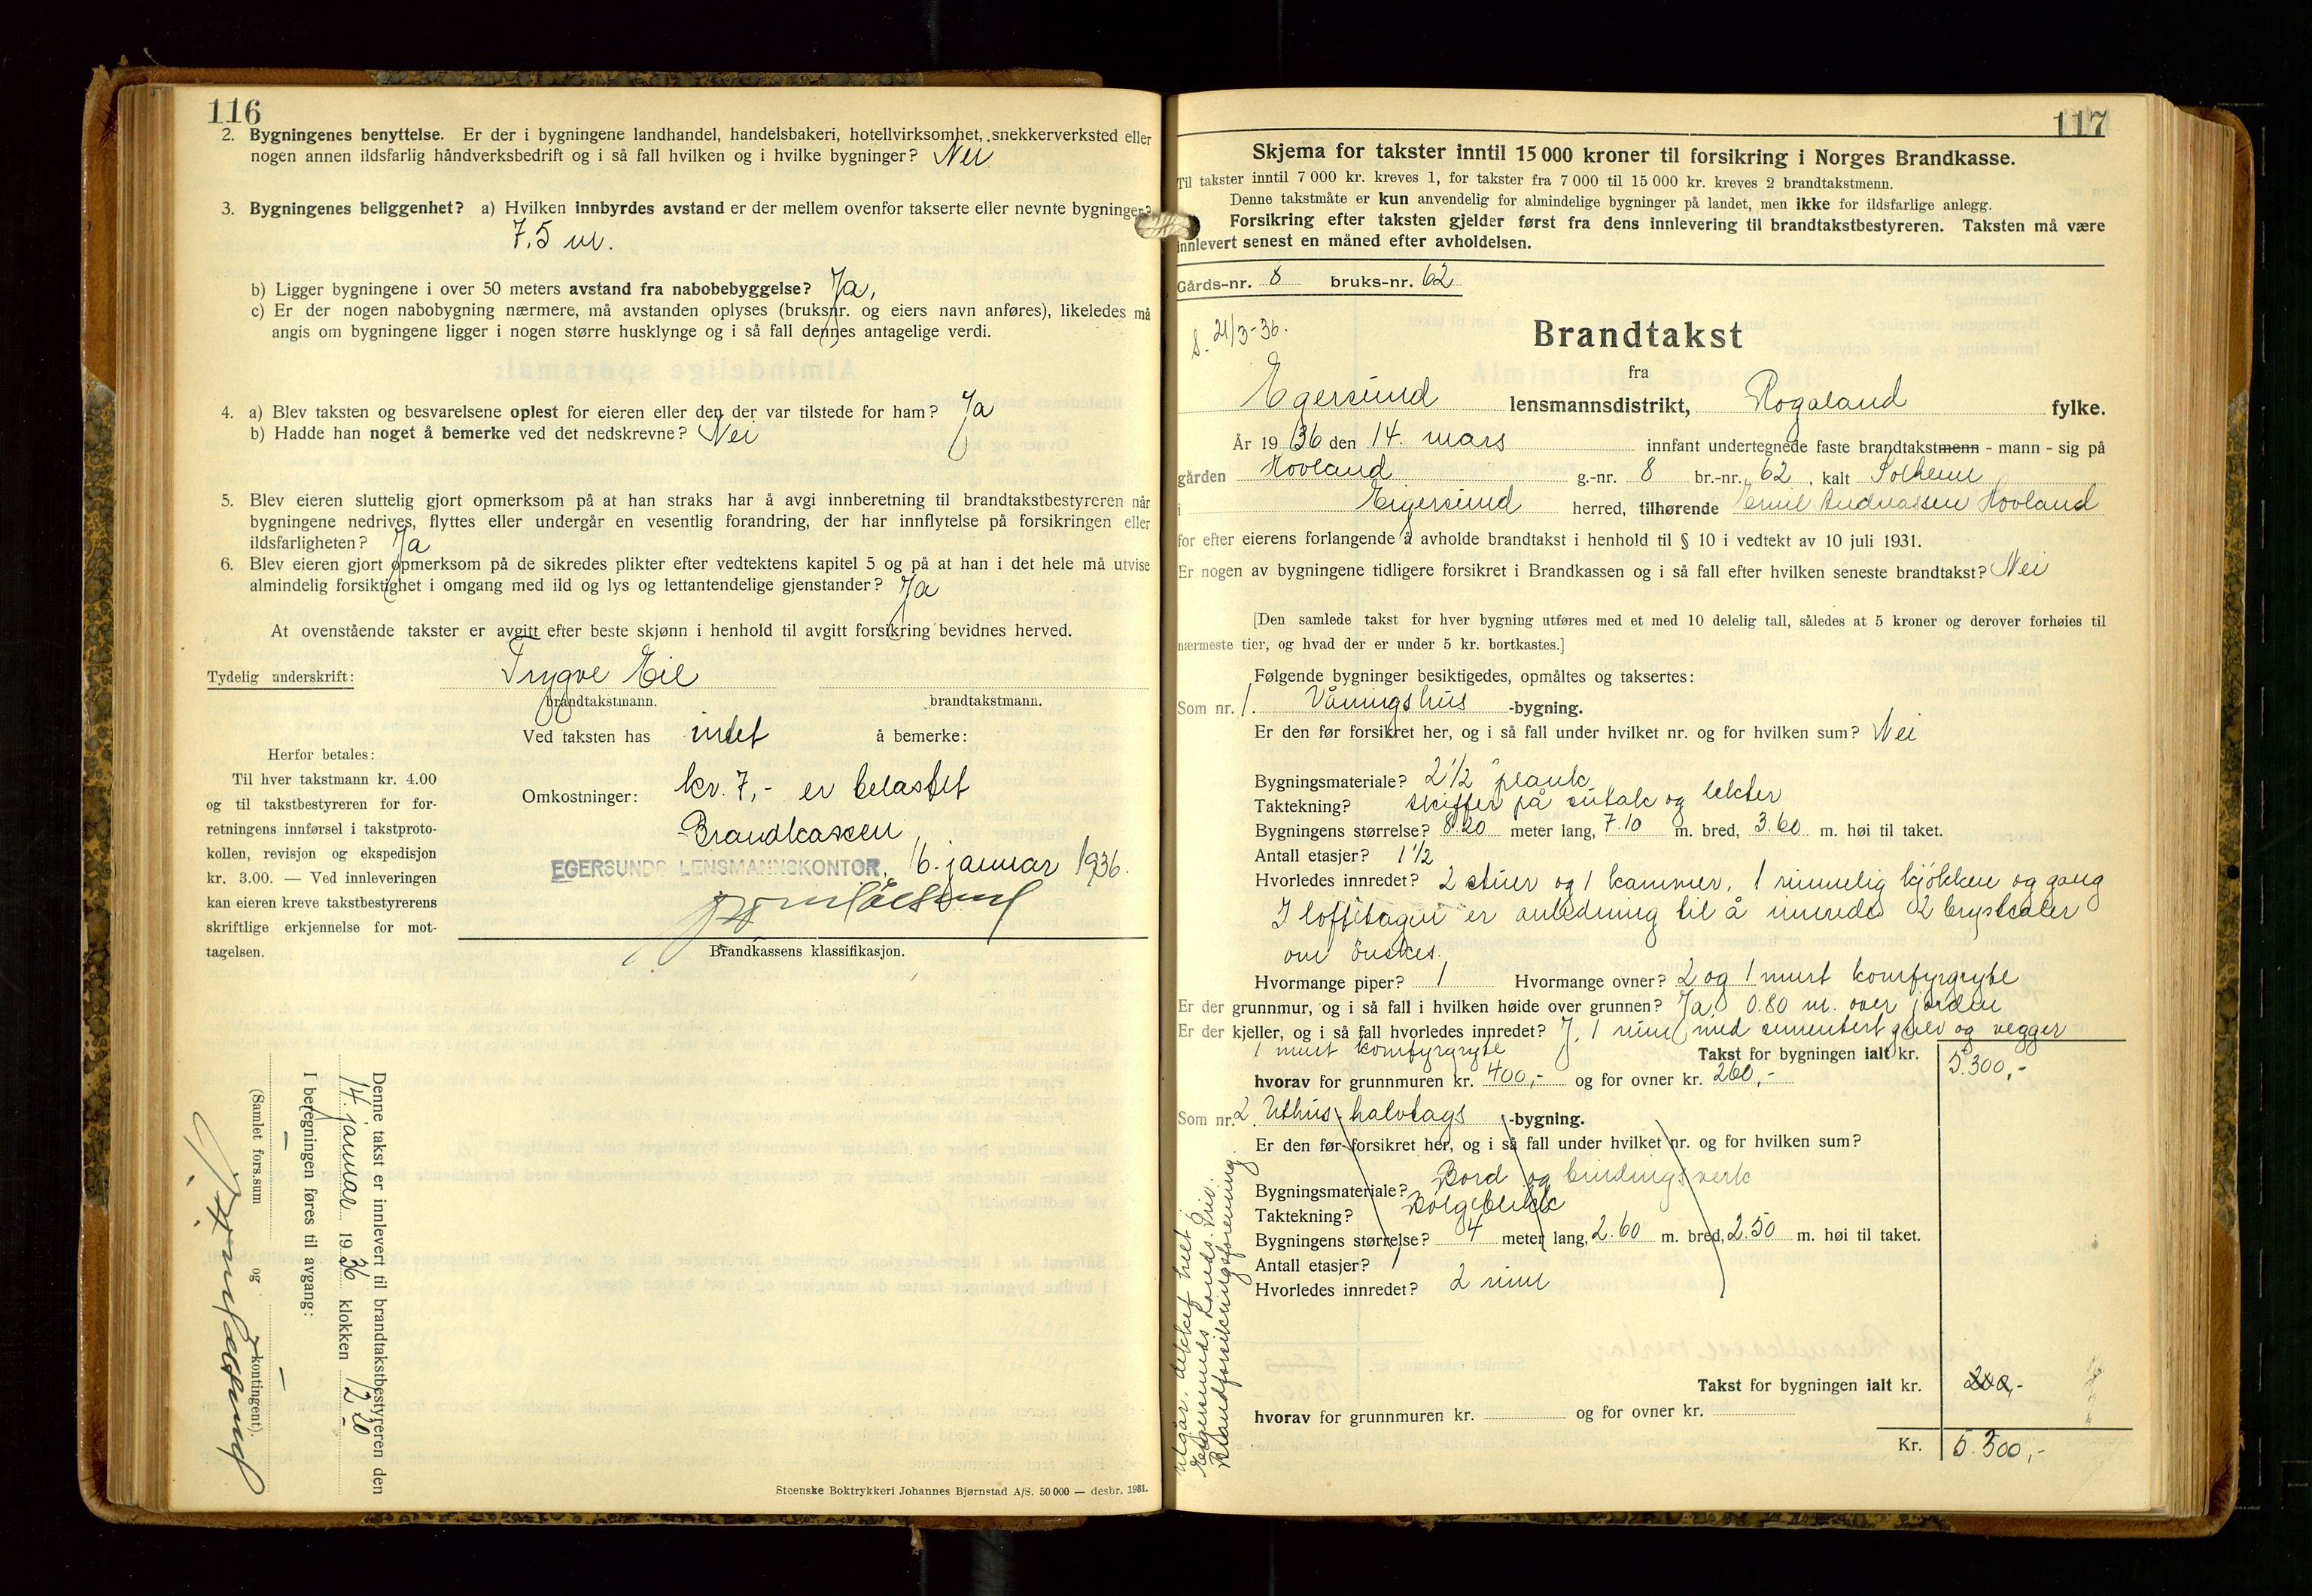 116
2. Bygningenes benyttelse. Er der i bygningene landhandel, handelsbakeri, hotellvirksomhet, snekkerverksted eller
nogen annen ildsfarlig håndverksbedrift og i så fall hvilken og i hvilke bygninger? Nei
3. Bygningenes beliggenhet? a) Hvilken innbyrdes avstand er der mellem ovenfor takserte eller nevnte bygninger?
7,5 m.
b) Ligger bygningene i over 50 meters avstand fra nabobebyggelse? Ja,
c) Er der nogen nabobygning nærmere, må avstanden oplyses (bruksnr. og eiers navn anføres), likeledes må
angis om bygningene ligger i nogen større husklynge og i så fall dennes antagelige verdi.
4. a) Blev taksten og besvarelsene oplest for eieren eller den der var tilstede for ham? Ja
b) Hadde han noget å bemerke ved det nedskrevne? Nei
5. Blev eieren sluttelig gjort opmerksom på at han straks har å avgi innberetning til brandtakstbestyreren når
bygningene nedrives, flyttes eller undergår en vesentlig forandring, der har innflytelse på forsikringen eller
ildsfarligheten? Ja
6. Blev eieren gjort opmerksom på de sikredes plikter efter vedtektens kapitel 5 og på at han i det hele må utvise
almindelig forsiktighet i omgang med ild og lys og lettantendelige gjenstander? Ja
At ovenstående takster er avgitt efter beste skjønn i henhold til avgitt forsikring bevidnes herved.
Tydelig underskrift: Trygve Eie
brandtakstmann. brandtakstmann.
Ved taksten has intet å bemerke:
Herfor betales:
Til hver takstmann kr. 4.00
og til takstbestyreren for for-
retningens innførsel i takstproto-
kollen, revisjon og ekspedisjon
kr. 3.00. — Ved innleveringen
kan eieren kreve takstbestyrerens
skriftlige erkjennelse for mot-
tagelsen.
Omkostninger: kr. 7,- er belastet
Brandkassen
EGERSUNDS LENSMANNSKONTOR, 16. januar 1936.
Brandkassens klassifikasjon.
Denne takst er innlevert til brandtakstbestyreren den
14. januar 1936 klokken 12 20
I beregningen føres til avgang:
(Samlet fors.sum og kontingent).
Steenske Boktrykkeri Johannes Bjørnstad A/S. 50 000 — desbr. 1931.
117
Skjema for takster inntil 15 000 kroner til forsikring i Norges Brandkasse.
Til takster inntil 7 000 kr. kreves 1, for takster fra 7 000 til 15 000 kr. kreves 2 brandtakstmenn.
Denne takstmåte er kun anvendelig for almindelige bygninger på landet, men ikke for ildsfarlige anlegg.
Forsikring efter taksten gjelder først fra dens innlevering til brandtakstbestyreren. Taksten må være
innlevert senest en måned efter avholdelsen.
Gårds-nr. 8 bruks-nr. 62
S. 21/3-36.
Brandtakst
fra
Egersund lensmannsdistrikt, Rogaland fylke.
År 1936 den 14. mars innfant undertegnede faste brandtakstmenn - mann - sig på
gården Hovland g.-nr. 8 br.-nr. 62, kalt Solheim
i Eigersund herred, tilhørende Emil Andreassen Hovland
for efter eierens forlangende å avholde brandtakst i henhold til § 10 i vedtekt av 10 juli 1931.
Er nogen av bygningene tidligere forsikret i Brandkassen og i så fall efter hvilken seneste brandtakst? Nei
[Den samlede takst for hver bygning utføres med et med 10 delelig tall, således at 5 kroner og derover forhøies til
nærmeste tier, og hvad der er under 5 kr. bortkastes.]
Følgende bygninger besiktigedes, opmåltes og taksertes:
Som nr. 1. Våningshus -bygning.
Er den før forsikret her, og i så fall under hvilket nr. og for hvilken sum? Nei
Bygningsmateriale? 2 1/2" plank
Taktekning? skiffer på sutak og lekter
Bygningens størrelse? 8.20 meter lang, 7.10 m. bred, 3.60 m. høi til taket.
Antall etasjer? 1 1/2
Hvorledes innredet? 2 stuer og 1 kammer, 1 rummelig kjökken og gang
I loftetagen er anledning til å innrede 2 brystsaler
om önskes.
Hvormange piper? 1 Hvormange ovner? 2 og 1 murt komfyrgryte
Er der grunnmur, og i så fall i hvilken høide over grunnen? Ja, 0.80 m. over jorden
Er der kjeller, og i så fall hvorledes innredet? J. 1 rum med sementert gulv og vegger
1 murt komfyrgryte
Takst for bygningen ialt kr. 5.300,-
hvorav for grunnmuren kr. 400,- og for ovner kr. 260,-
Som nr. 2. Uthus, halvtags -bygning.
Er den før forsikret her, og i så fall under hvilket nr. og for hvilken sum?
Bygningsmateriale? Bord og bindingsverk
Taktekning? Bölgeblikk
Bygningens størrelse? 4 meter lang, 2.60 m. bred, 2.50 m. høi til taket.
Antall etasjer? 1
Hvorledes innredet? 2 rum
Utgår, dekket helt i
Eigersunds Lands. Priv.
Brandforsikringsforening.
Takst for bygningen ialt kr. 200,-
hvorav for grunnmuren kr. og for ovner kr.
Kr. 5.300,-